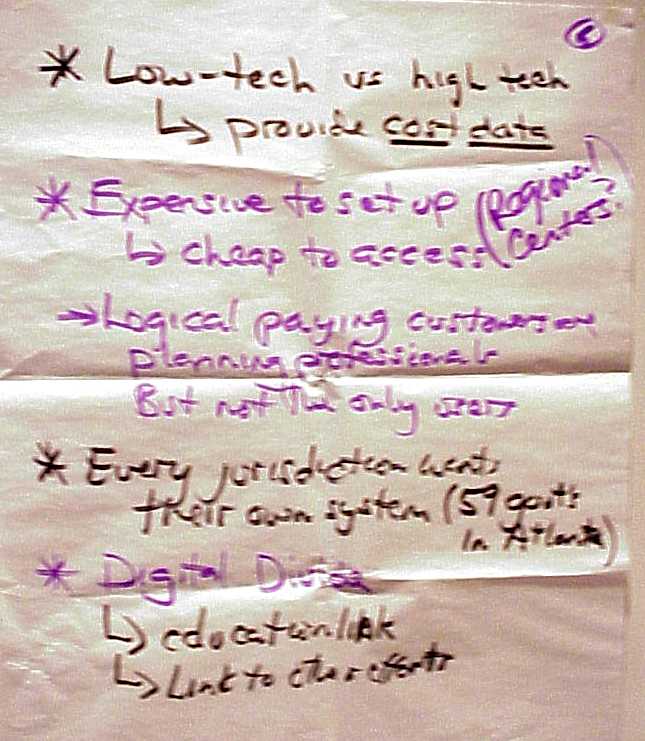 * Low-tech vs high tech
↳ provide cost data
* Expensive to set up (Regional
↳ cheap to access Centers)
→ Logical paying customers are
planning professionals
But not the only users
* Every jurisdiction wants
their own system (59 govt's
in Atlanta)
* Digital Divide
↳ education link
↳ Link to other efforts